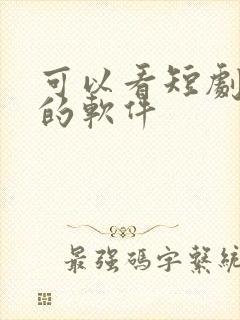 可以看短劇
的軟件
最強碼字繫統